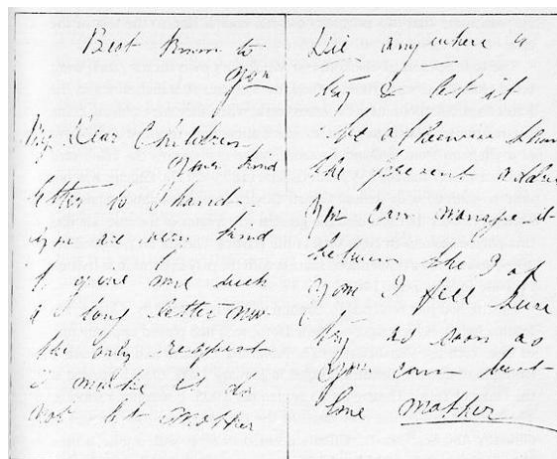 Best known to
You
My Dear Children
Your kind
letter to hand
you are very kind
to give me such
a long letter now
the only request
I make is do
not let Mother
die anywhere &
try & let it
be otherwise than
the present
You can manage it
between the 2 of
you I feel sure
try as soon as
you can best
love Mother